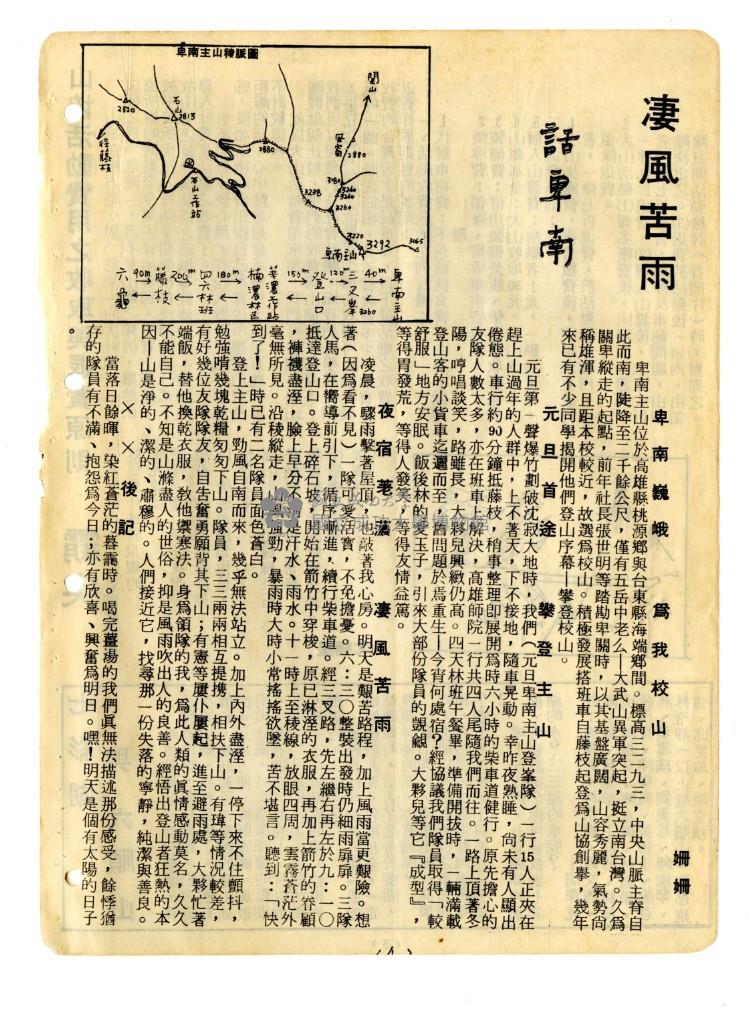 淒風苦雨
話卑南
姍姍
卑南主山稜脈圖
關山
石山
2813
2520
往藤枝
石山工作站
2880
3278
3260
3220
3292
3065
卑南主山
六龜
90m
藤枝
200m
四六林班
180m
楠濃林區
荖濃工作站
150m
登山口
120m
三叉峯
3260
40m
卑南主山
卑南巍峨 為我校山
卑南主山位於高雄縣桃源鄉與台東縣海端鄉間。標高三二九三，中央山脈主脊自
此而南，陡降至二千餘公尺，僅有五岳中老么—大武山異軍突起，挺立南台灣。久為
關卑縱走的起點，前年社長張世明等踏勘卑關時，以其基盤廣闊，山容秀麗，氣勢向
稱雄渾，且距本校較近，故選為校山。積極發展搭班車自藤枝起登為山協創舉，幾年
來已有不少同學揭開他們登山序幕—攀登校山。
元旦首途 攀登主山
元旦第一聲爆竹劃破沈寂大地時，我們（元旦卑南主山登峯隊）一行15人正夾在
趕上山過年的人群中，上不著天，下不接地，隨車晃動。幸昨夜熟睡，尚未有人顯出
倦態。車行約90分鐘抵藤枝，稍事整理即展開為時六小時的柴車道健行。原先擔心的
友隊人數太多，亦在班車上解決，高雄師院一行共四人尾隨我們而往。一路上頂著冬
陽，哼唱談笑，路雖長，大夥兒興緻仍高。四天林班午餐畢，準備開拔時，一輛滿載
登山客的小貨車迄邐而至，舊問題於焉重生—今宵何處宿？經協議我們隊員取得「較
舒服」地方安眠。飯後林的愛玉子，引來大部份隊員的覬覦。大夥兒等它『成型』，
等得胃發荒，等得人發笑，等得友情益篤。
夜宿荖濃 凄風苦雨
凌晨，驟雨擊著屋頂，也敲著我心房。明天是艱苦路程，加上風雨當更艱險。想
著（因為看不見）一隊可愛活寶，不免擔憂。六：三〇整裝出發時仍細雨扉扉。三隊
人馬，在嚮導前引下，循序漸進，續行柴車道。經三叉路，先左繼右再左於九：一〇
抵達登山口。登上碎石坡，開始在箭竹中穿梭，原已淋溼的衣服，再加上箭竹的眷顧
，褲襪盡溼，臉上早分不清是汗水、雨水。十一時上至稜線，放眼四周，雲霧蒼茫外
毫無所見。沿稜縱走，風強勁，暴雨時大時小常搖搖欲墜，苦不堪言。聽到：「快
到了！」時已有二名隊員面色蒼白。
登上主山，勁風自南而來，幾乎無法站立。加上內外盡溼，一停下來不住顫抖，
勉強啃幾塊乾糧匆匆下山。隊員，三三兩兩相互提携，相扶下山。有瑋等情況較差，
有好幾位友隊隊友，自告奮勇願背其下山；有憲等屢仆屢起，進至避雨處，大夥忙著
端飯，替他換乾衣服，教他禦寒法。身為領隊的我，為此人類的真情感動莫名，久久
不能自己。不知是山滌盡人的世俗，抑是風雨吹出人的良善。經悟出登山者狂熱的本
因—山是淨的、潔的、肅穆的。人們接近它，找尋那一份失落的寧靜，純潔與善良。
×　×　後記
當落日餘暉，染紅蒼茫的暮靄時。喝完薑湯的我們真無法描述那份感受，餘悸猶
存的隊員有不滿、抱怨為今日；亦有欣喜、興奮為明日。嘿！明天是個有太陽的日子
。